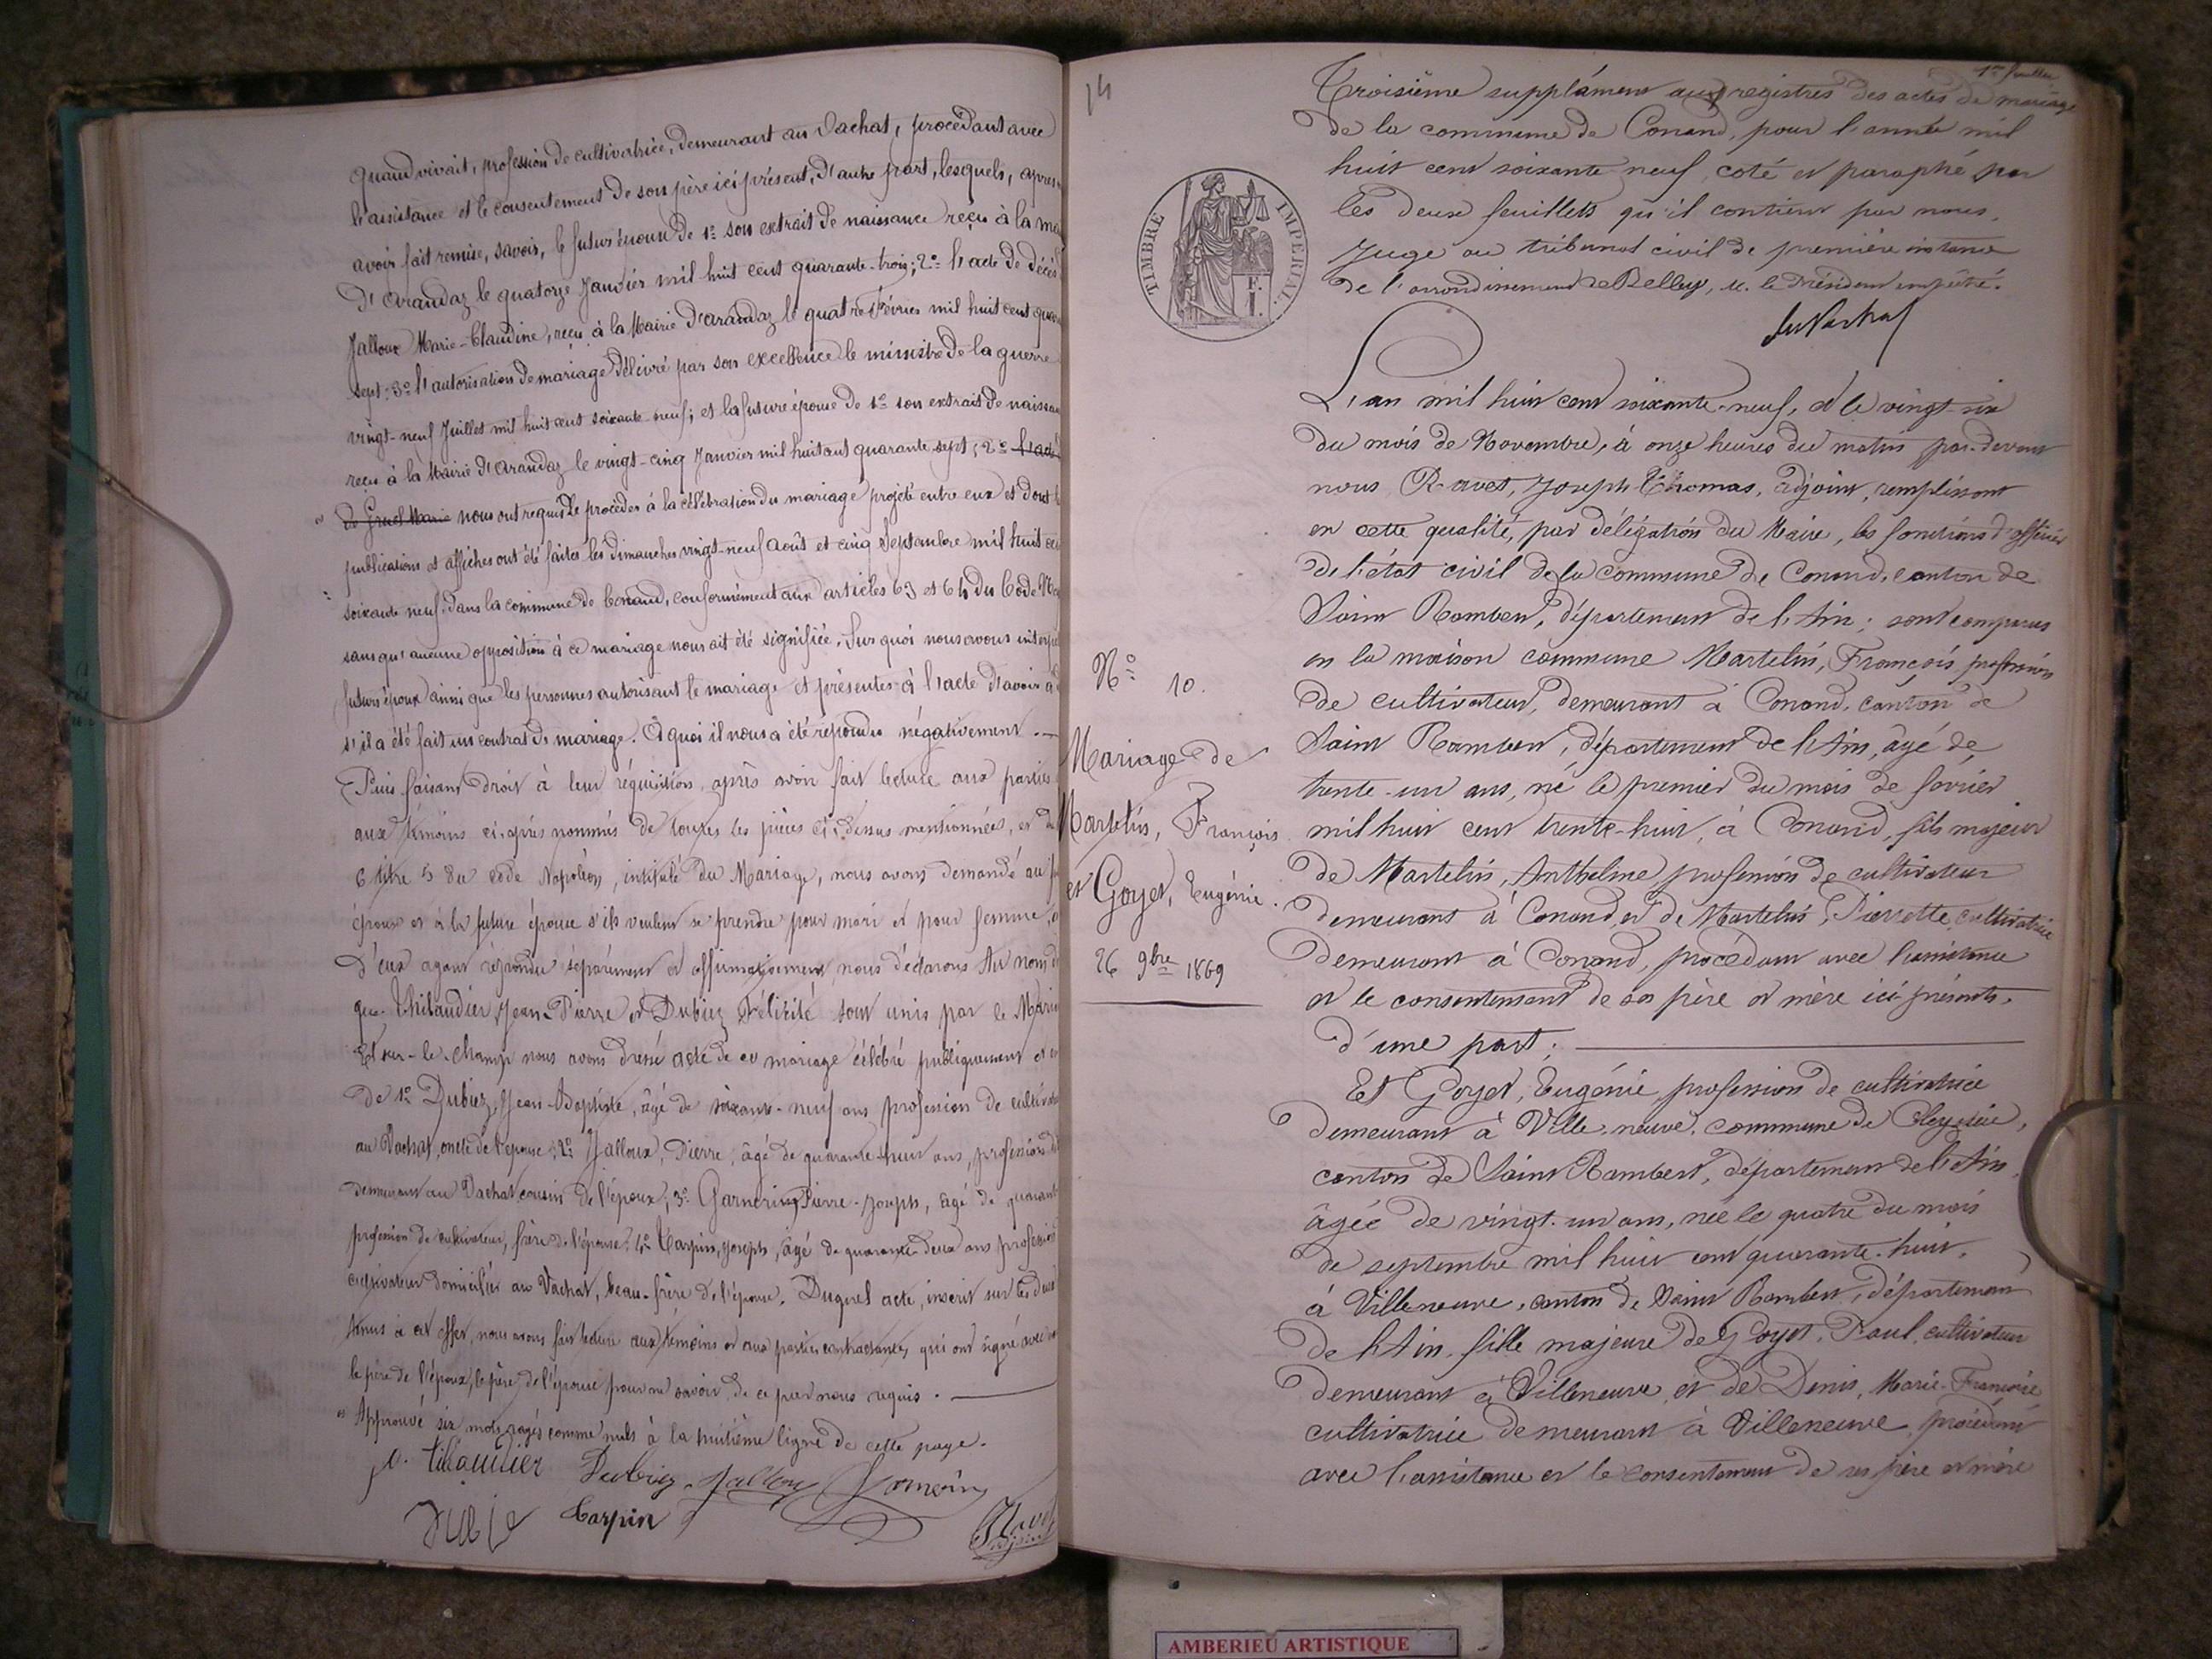 quand vivait, profession de cultivatrice, demeurant au Vachat, procédant avec
l'assistance et le consentement de son père ici présent, d'autre part, lesquels, après
avoir fait remise, savoir, le futur époux de 1° son extrait de naissance reçu à la
d'Arandaz le quatorze Janvier mil huit cent quarante-trois; 2° l'acte de décès
Jalloux Marie-Claudine, reçu à la Mairie d'Arandaz le quatre Février mil huit cent
sept; 3° l'autorisation de mariage délivré par son excellence le ministre de la guerre
vingt-neuf Juillet mil huit cent soixante-neuf; et la future épouse de 1° son extrait de
reçu à la Mairie d'Arandaz le vingt-cinq Janvier mil huit cent quarante sept; 2°
nous ont requis de procéder à la célébration du mariage projeté entre eux et dont
publications et affiches ont été faites les dimanches vingt-neuf Août et cinq Septembre mil huit
soixante neuf, dans la commune de Conand, conformément aux articles 63 et 64 du Code
sans qu'aucune opposition à ce mariage nous ait été signifiée. Sur quoi nous avons
futurs époux ainsi que les personnes autorisant le mariage et présentes à l'acte d'avoir à
s'il a été fait un contrat de mariage. A quoi il nous a été répondu négativement.
Puis faisant droit à leur réquisition, après avoir fait lecture aux parties
aux témoins ci-après nommés de toutes les pièces ci-dessus mentionnées, et du
6 titre 5 du code Napoléon, intitulé du Mariage, nous avons demandé au
époux et à la future épouse s'ils veulent se prendre pour mari et pour femme,
d'eux ayant répondu séparément et affirmativement, nous déclarons Au nom
que Thibaudier, Jean-Pierre et Dubiez Félicité sont unis par le
Et sur-le-champ nous avons dressé acte de ce mariage célébré publiquement et
de 1° Dubiez, Jean-Baptiste, âgé de soixante-neuf ans profession de
au Vachat, oncle de l'épouse; 2° Jalloux, Pierre, âgé de quarante-huit ans, profession
demeurant au Vachat cousin de l'époux; 3° Garnerin Pierre-Joseph, âgé de
profession de cultivateur, frère de l'épouse; 4° Carpin, Joseph, âgé de quarante-deux ans profession
cultivateur domicilié au Vachat, beau-frère de l'épouse. Duquel acte, inscrit sur les deux
tenus à cet effet, nous avons fait lecture aux témoins et aux parties contractantes qui ont signé avec
le père de l'époux, le père de l'épouse pour ne savoir, de ce par nous requis.
Approuvé six mots rayés comme nuls à la huitième ligne de cette page.
Dubiez Jalloux
Carpin
14
1er feuillet
Troisième supplément aux registres des actes de mariage
de la commune de Conand, pour l'année mil
huit cent soixante neuf, coté et paraphé par
les deux feuillets qu'il contient par nous,
Juge au tribunal civil de première instance
de l'arrondissement de Belley, M. le Président empêché.
TIMBRE IMPERIAL
N° 10.
Mariage de
Martelin, François
et Goyet, Eugénie.
26 9bre 1869
L'an mil huit cent soixante-neuf, et le vingt-six
du mois de Novembre, à onze heures du matin par-devant
nous Ravet, Joseph Thomas, adjoint, remplissant
en cette qualité, par délégation du Maire, les fonctions d'officier
de l'état civil de la commune de Conand, canton de
Saint Rambert, département de l'Ain; sont comparus
en la maison commune Martelin, François, profession
de cultivateur, demeurant à Conand, canton de
Saint Rambert, département de l'Ain, âgé de
trente-un ans, né le premier du mois de février
mil huit cent trente-huit, à Conand, fils majeur
de Martelin, Anthelme profession de cultivateur
demeurant à Conand, et de Martelin, Pierrette cultivatrice
demeurant à Conand, procédant avec l'assistance
et le consentement de ses père et mère ici présents,
d'une part;
Et Goyet, Eugénie, profession de cultivatrice
demeurant à Ville-neuve, commune de Cleyzieu,
canton de Saint Rambert, département de l'Ain,
âgée de vingt-un ans, née le quatre du mois
de septembre mil huit cent quarante-huit,
à Villeneuve, canton de Saint Rambert, département
de l'Ain, fille majeure de Goyet, Paul, cultivateur
demeurant à Villeneuve, et de Denis, Marie-Françoise
cultivatrice demeurant à Villeneuve, procédant
avec l'assistance et le consentement de ses père et mère
AMBERIEU ARTISTIQUE